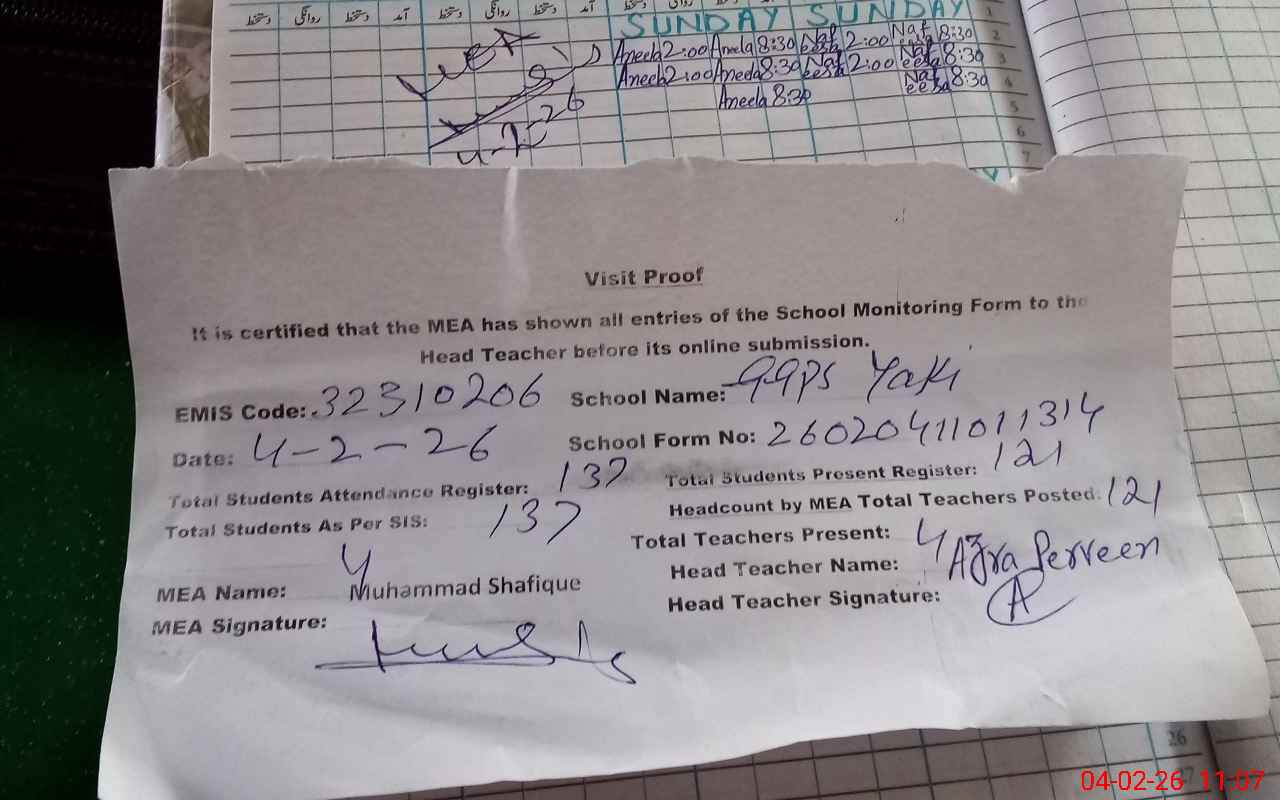 دستخط روانگی دستخط آمد دستخط روانگی دستخط آمد
SUNDAY SUNDAY 1
Aneela 2:00 Aneela 8:30 Nafeesa 2:00 Nafeesa 8:30 2
Aneela 2:00 Aneela 8:30 Nafeesa 2:00 Nafeesa 8:30 3
Aneela 8:30 Nafeesa 8:30 4
5
6
7
MEA
4-2-26
Visit Proof
It is certified that the MEA has shown all entries of the School Monitoring Form to the
Head Teacher before its online submission.
EMIS Code: 32310206 School Name: GGPS Yaki
Date: 4-2-26 School Form No: 26020411011314
Total Students Attendance Register: 137 Total Students Present Register: 121
Total Students As Per SIS: 137 Headcount by MEA Total Teachers Posted: 121
4 Total Teachers Present: 4
MEA Name: Muhammad Shafique Head Teacher Name: Azra Perveen
MEA Signature: Head Teacher Signature: A
26
27
04-02-26 11:07